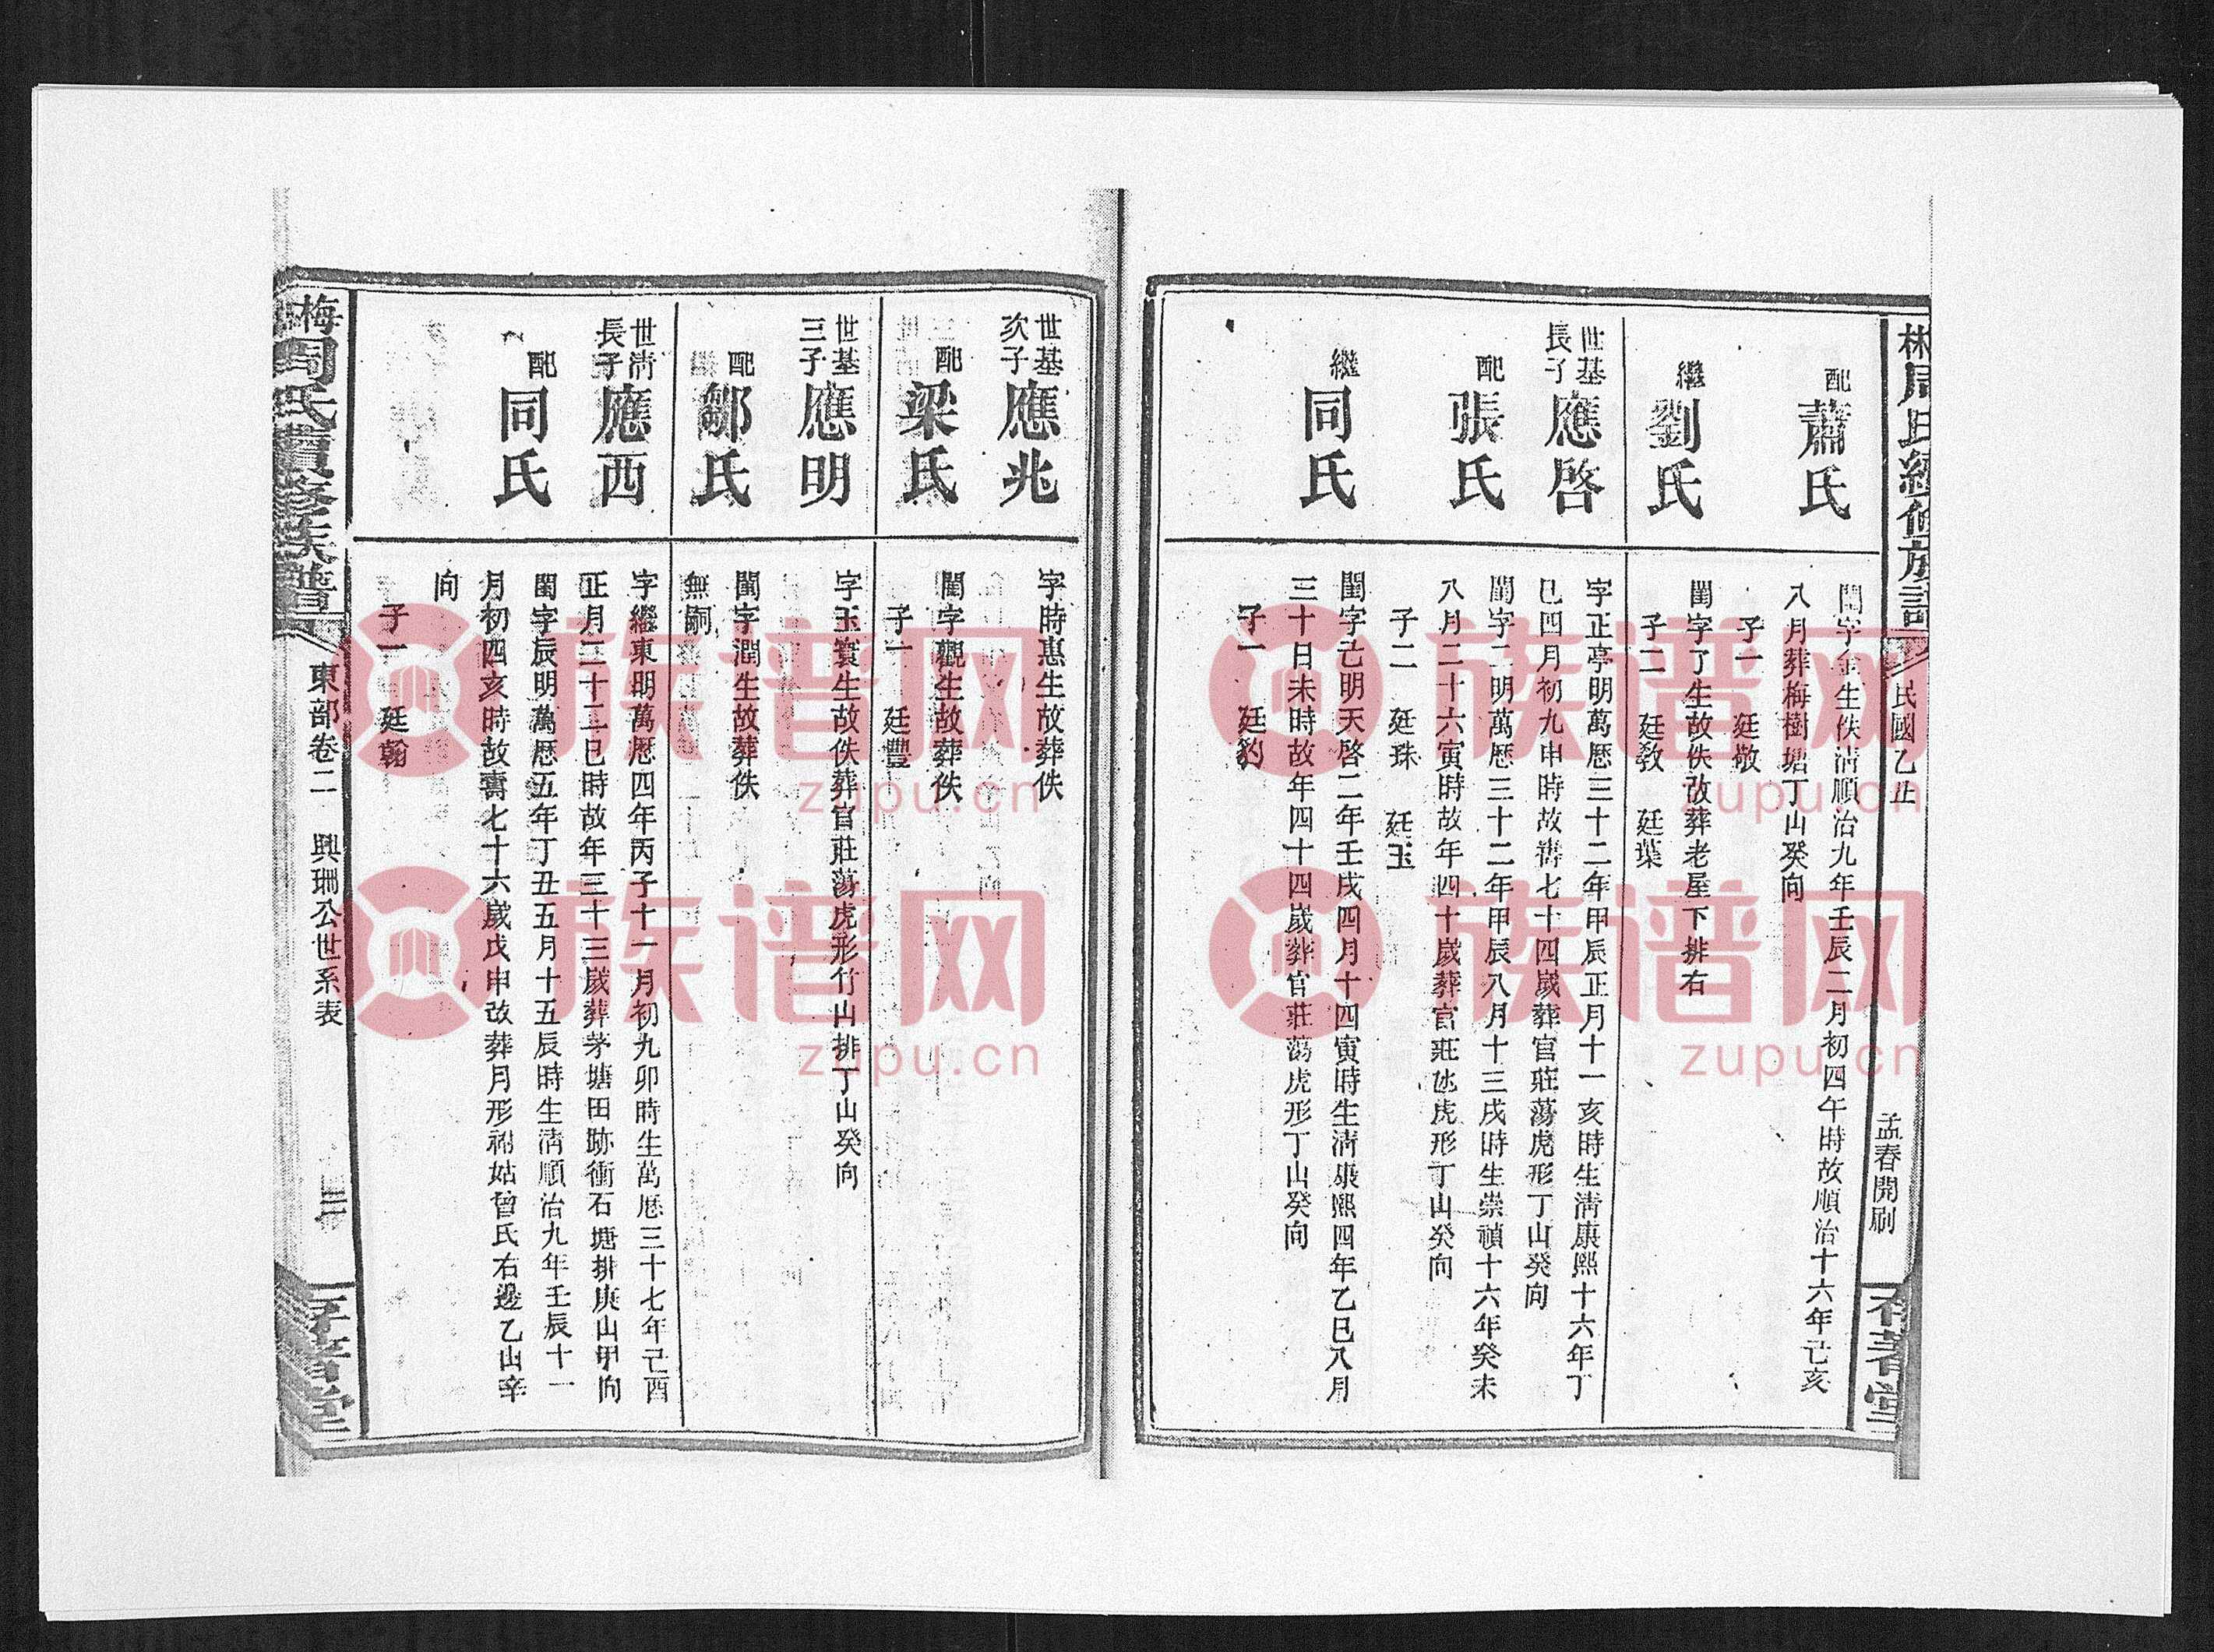 周氏續修族譜
民國乙丑
孟春開刷
存著堂
配
蕭氏
閨字金生佚淸順治九年壬辰二月初四午時故順治十六年己亥
八月葬梅樹塘丁山癸向
子一 廷敬
繼
劉氏
閨字了生故佚改葬老屋下排右
子二 廷敎 廷葉
世基
長子
應啓
字正亭明萬歷三十二年甲辰正月十一亥時生淸康熙十六年丁
巳四月初九申時故壽七十四歲葬官莊蕩虎形丁山癸向
配
張氏
閨字二明萬歷三十二年甲辰八月十三戌時生崇禎十六年癸未
八月二十六寅時故年四十歲葬官莊虎形丁山癸向
子二 廷珠 廷玉
繼
同氏
閨字己明天啓二年壬戌四月十四寅時生淸康熙四年乙巳八月
三十日未時故年四十四歲葬官莊蕩虎形丁山癸向
子一 廷豹
世基
次子
應兆
字時惠生故葬佚
配
梁氏
閨字觀生故葬佚
子一 廷豐
世基
三子
應明
字玉寰生故佚葬官莊蕩虎形竹山排丁山癸向
配
鄒氏
閨字潤生故葬佚
無嗣
世淸
長子
應西
字繼東明萬歷四年丙子十一月初九卯時生萬歷三十七年己酉
正月二十二巳時故年三十三歲葬茅塘田跡衝石塘排庚山甲向
配
同氏
閨字辰明萬歷五年丁丑五月十五辰時生淸順治九年壬辰十一
月初四亥時故壽七十六歲戊申改葬月形祔姑曾氏右邊乙山辛
向
子一 廷翰
梅周氏續修族譜
東部卷二 興珊公世系表
三
存著堂
族谱网
zupu.cn
族谱网
zupu.cn
族谱网
zupu.cn
族谱网
zupu.cn